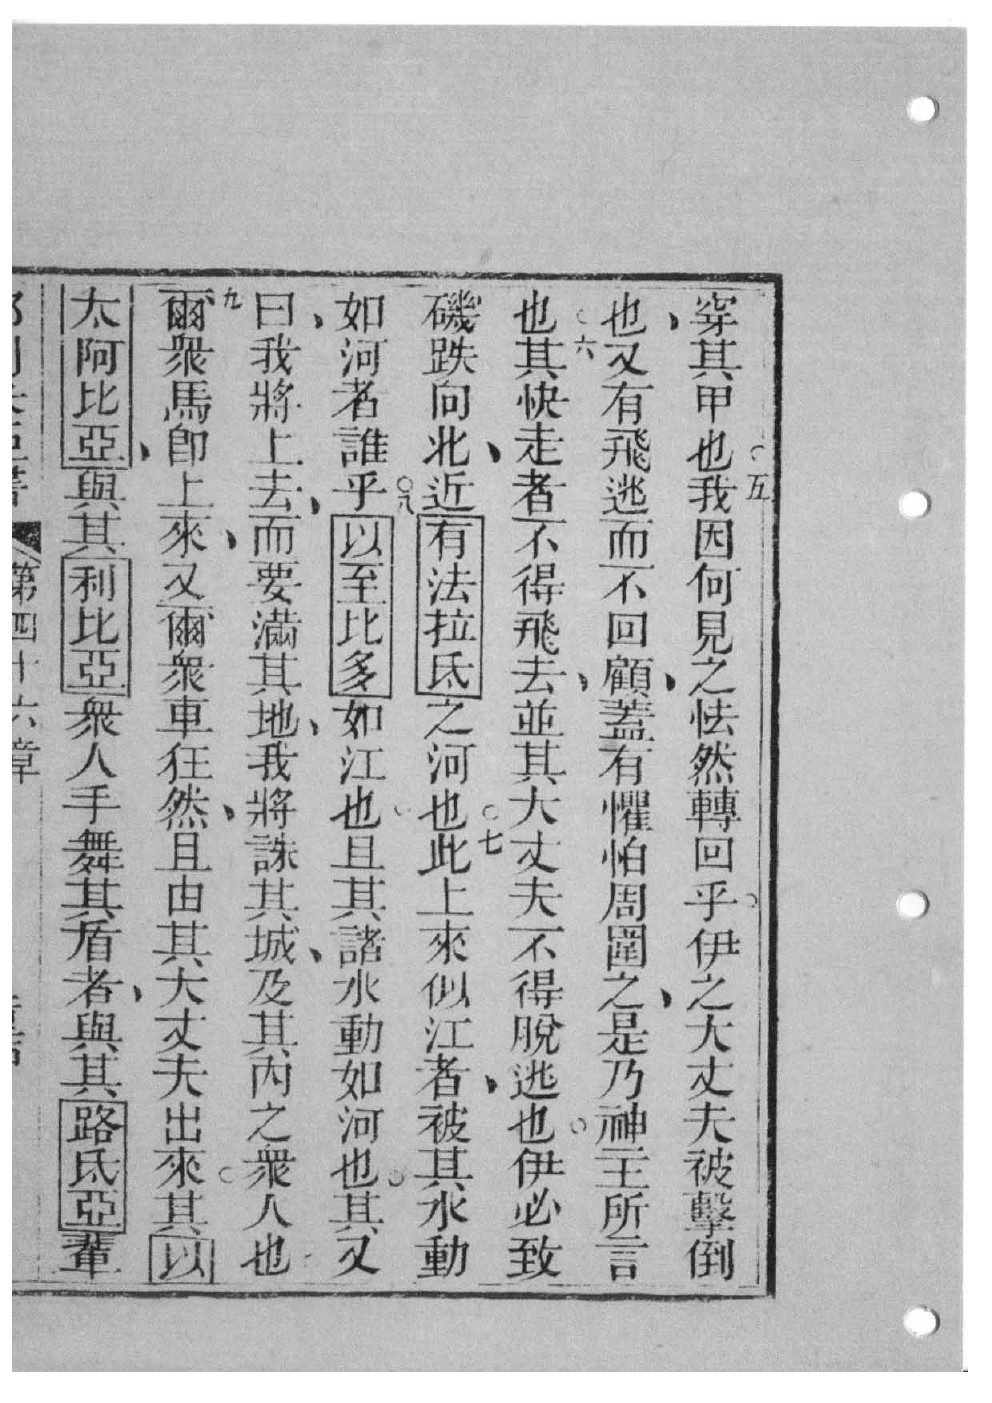 穿其甲也五我因何見之怯然轉回乎伊之大丈夫被擊倒
也又有飛逃而不回顧蓋有懼怕周圍之是乃神主所言
也六其快走者不得飛去並其大丈夫不得脫逃也伊必致
磯跌向北近有法拉氐之河也七此上來似江者被其水動
如河者誰乎八以至比多如江也且其諸水動如河也其又
曰我將上去而要滿其地我將誅其城及其內之衆人也
九爾衆馬即上來又爾衆車狂然且由其大丈夫出來其以
太阿比亞與其利比亞衆人手舞其盾者與其路氐亞輩
第四十六章